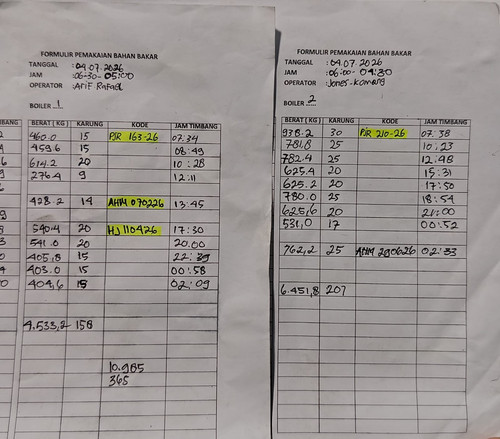 FORMULIR PEMAKAIAN BAHAN BAKAR
TANGGAL : 09.07.2026
JAM : 06.30 - 05:00
OPERATOR : Arif. Rafael
BOILER 1
BERAT ( KG ) KARUNG KODE JAM TIMBANG
460.0 15 PJR 163-26 07.34
459.6 15 08:49
614.2 20 10:28
276.4 9 12:11
428.2 14 AHM 070226 13:45
540.4 20 HJ 110426 17:30
541.0 20 20.00
405,8 15 22:39
403.0 15 00:58
404,6 15 02:09
4.533,2 158
10.985
365
FORMULIR PEMAKAIAN BAHAN BAKAR
TANGGAL : 09.07.2026
JAM : 06:00 - 04:30
OPERATOR : Jones. Komang
BOILER 2
BERAT ( KG ) KARUNG KODE JAM TIMBANG
938.2 30 PJR 210-26 07.38
781,8 25 10:23
782.4 25 12:48
625.4 20 15:31
625.2 20 17:50
780.0 25 18:54
625,6 20 21:00
531,0 17 00:52
762,2 25 AHM 290626 02:33
6.451,8 207